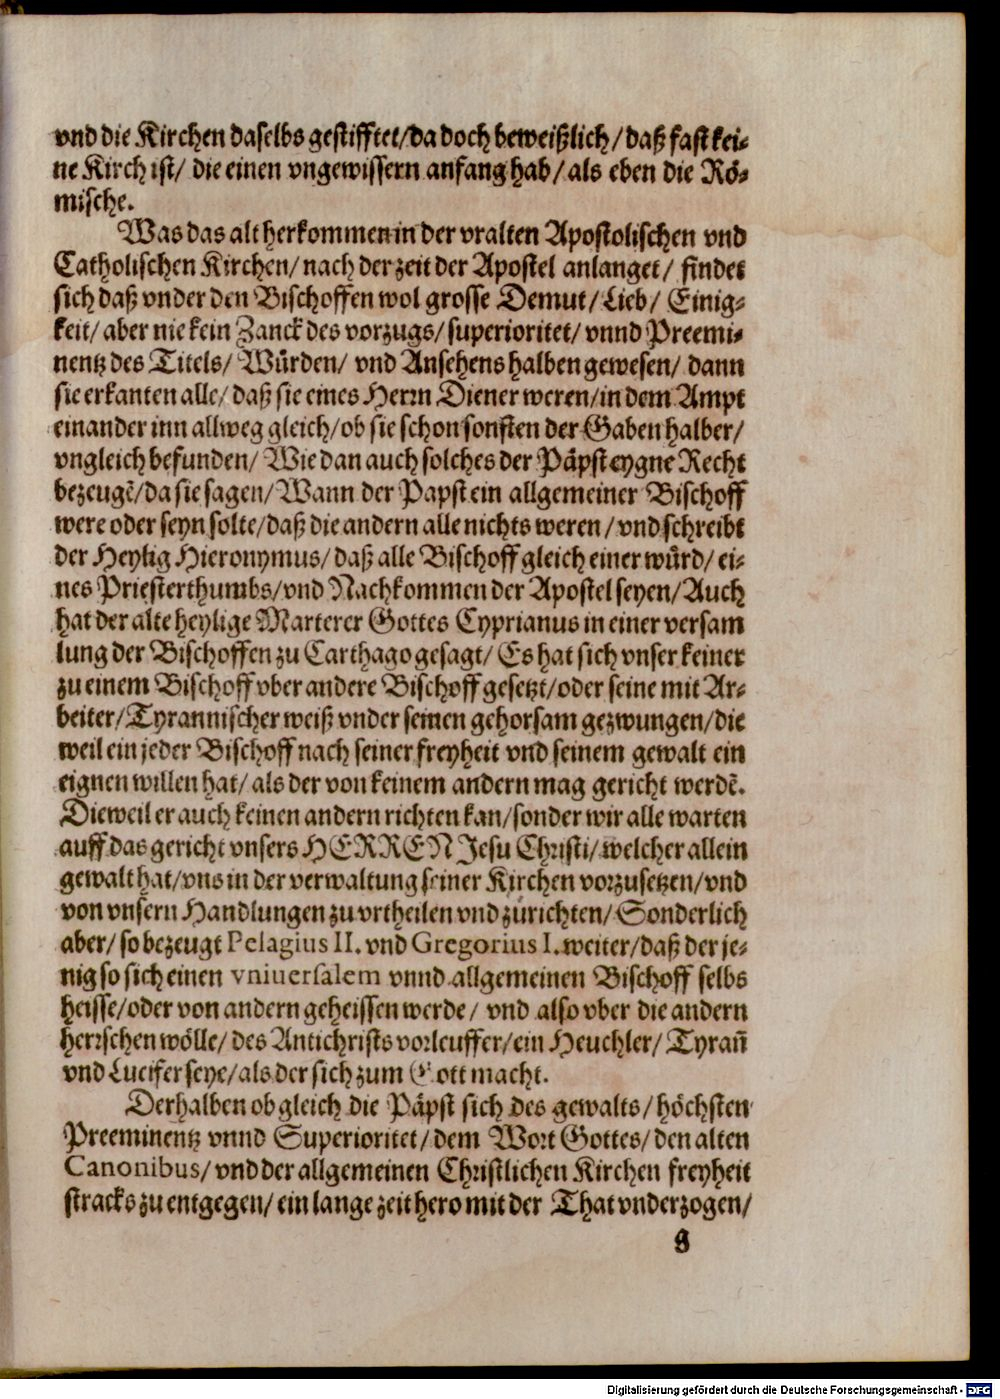 vnd die Kirchen daselbs gestifftet/ da doch beweißlich/ daß fast kei-
ne Kirch ist/ die einen vngewissern anfang hab/ als eben die Rö-
mische.
Was das alt herkommen in der vralten Apostolischen vnd
Catholischen Kirchen/ nach der zeit der Apostel anlanget/ findet
sich daß vnder den Bischoffen wol grosse Demut/ Lieb/ Einig-
keit/ aber nie kein Zanck des vorzugs/ superioritet/ vnnd Preemi-
nentz des Titels/ Würden/ vnd Ansehens halben gewesen/ dann
sie erkanten alle/ daß sie eines Herrn Diener weren/ in dem Ampt
einander inn allweg gleich/ ob sie schon sonsten der Gaben halber/
vngleich befunden/ Wie dan auch solches der Päpst eygne Recht
bezeugẽ/ da sie sagen/ Wann der Papst ein allgemeiner Bischoff
were oder seyn solte/ daß die andern alle nichts weren/ vnd schreibt
der Heylig Hieronymus/ daß alle Bischoff gleich einer würd/ ei-
nes Priesterthumbs/ vnd Nachkommen der Apostel seyen/ Auch
hat der alte heylige Marterer Gottes Cyprianus in einer versam
lung der Bischoffen zu Carthago gesagt/ Es hat sich vnser keiner
zu einem Bischoff vber andere Bischoff gesetzt/ oder seine mit Ar-
beiter/ Tyrannischer weiß vnder seinen gehorsam gezwungen/ die
weil ein jeder Bischoff nach seiner freyheit vnd seinem gewalt ein
eignen willen hat/ als der von keinem andern mag gericht werdẽ.
Dieweil er auch keinen andern richten kan/ sonder wir alle warten
auff das gericht vnsers HERREN Jesu Christi/ welcher allein
gewalt hat/ vns in der verwaltung seiner Kirchen vorzusetzen/ vnd
von vnsern Handlungen zu vrtheilen vnd zurichten/ Sonderlich
aber/ so bezeugt Pelagius II. vnd Gregorius I. weiter/ daß der je-
nig so sich einen vniuersalem vnnd allgemeinen Bischoff selbs
heisse/ oder von andern geheissen werde/ vnd also vber die andern
herrschen wölle/ des Antichrists vorleuffer/ ein Heuchler/ Tyrañ
vnd Lucifer seye/ als der sich zum Gott macht.
Derhalben ob gleich die Päpst sich des gewalts/ höchsten
Preeminentz vnnd Superioritet/ dem Wort Gottes/ den alten
Canonibus/ vnd der allgemeinen Christlichen Kirchen freyheit
stracks zu entgegen/ ein lange zeit hero mit der That vnderzogen/
g
Digitalisierung gefördert durch die Deutsche Forschungsgemeinschaft - DFG